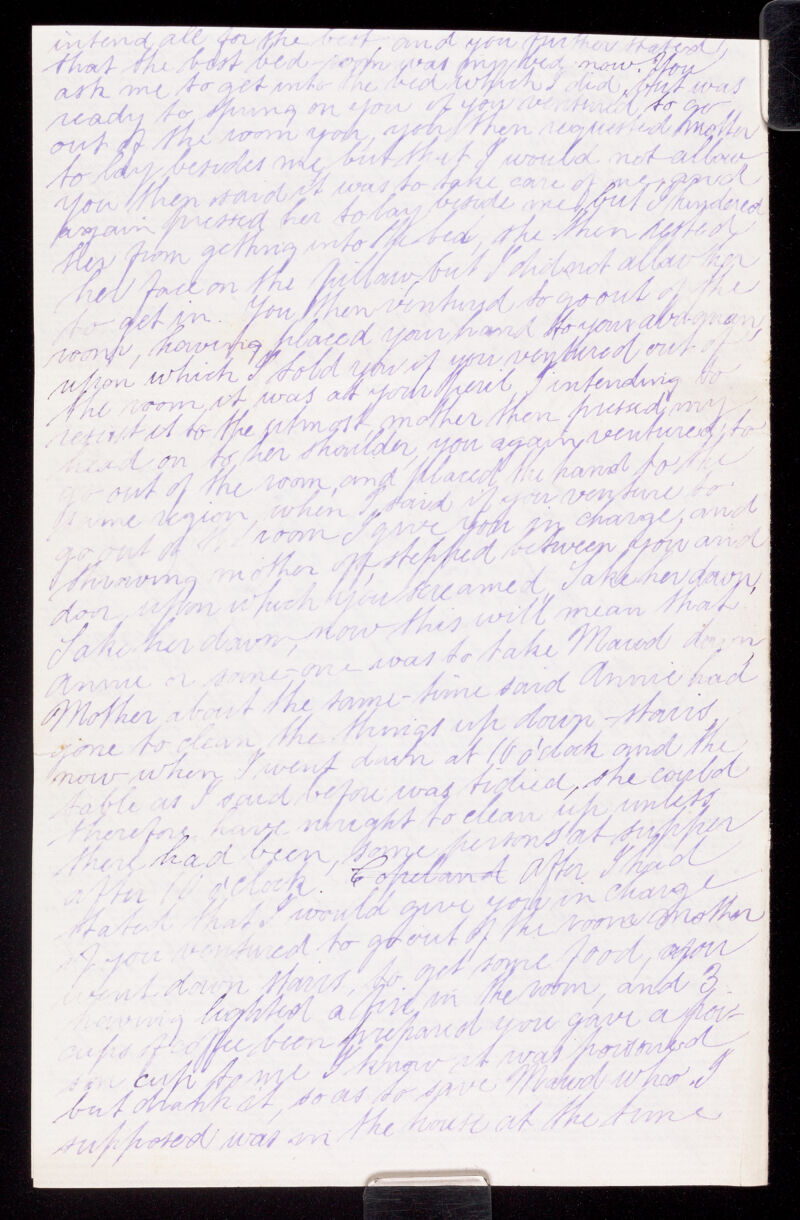 intend all for the best and you further stated,
that the best bed-room was my bed now. You
ask me to get into the bed which I did, but was
ready to spring on you if you ventured to go
out of the room you, you then requested Mother
to lay besides me, but that I would not allow
you then said it was to take care of me, and
again pressed her to lay beside me but I hindered
her from getting into the bed, she then rested
her face on the pillow but I did not allow her
to get in. You then ventured to go out of the
room, having placed your hand to your
upon which I told you if you ventured out of
the room it was at your peril I intending to
resist it to the utmost, mother then pressed my
head on to her shoulder, you again ventured to
go out of the room, and placed the hand to the
same region, when I said if you venture to
go out of the room I give you in charge, and
throwing mother off stepped between you and
door, upon which you screamed, Take her down,
Take her down, now this will mean that
Annie or some-one was to take Mawd down,
Mother about the same-time said Annie had
gone to clean the things up down-stairs,
now when I went down at 10 o'clock and the
table as I said before was tidied, she could
therefore have nought to clean up unless
there had been, some persons at supper
after 10 o'clock. Copeland After I had
stated that I would give you in charge
if you ventured to go out of the room Mother
went down stairs, to get some food, you
having lighted a fire in the room, and 3
cups of coffee been prepared you gave a poi-
son cup to me I know it was poisoned
but drank it, so as to save Mawd who I
supposed was in the house at the time